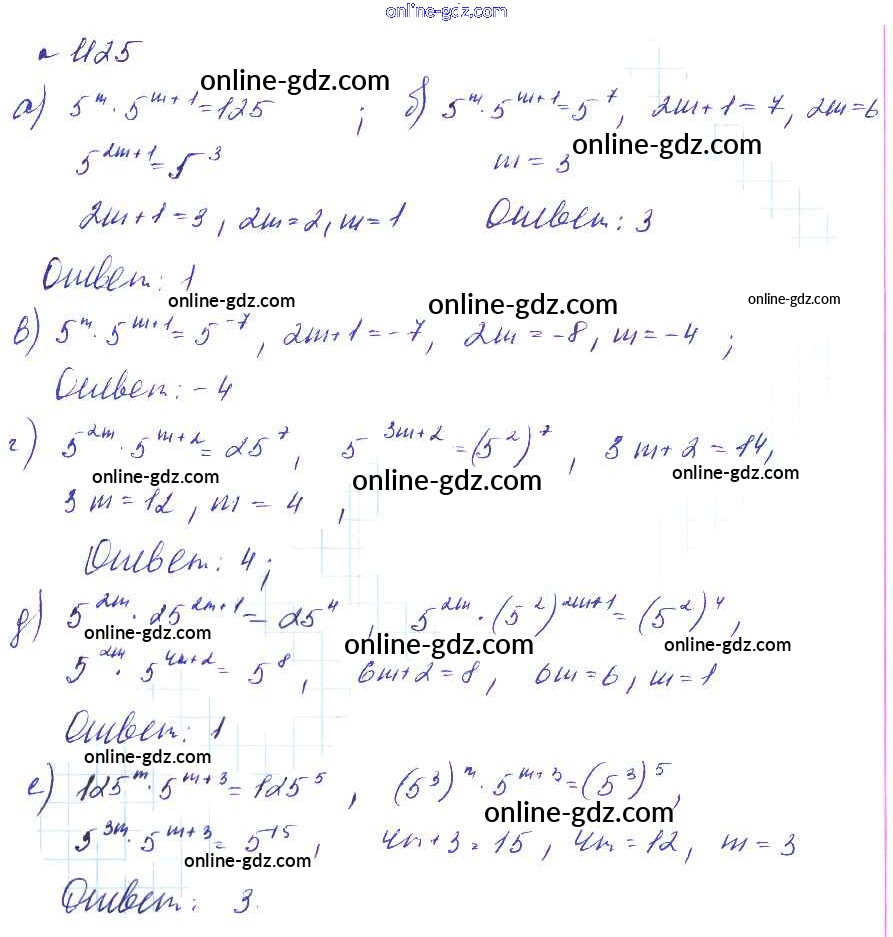 online-gdz.com
n 1125
а) 5^m · 5^{m+1} = 125 ; б) 5^m · 5^{m+1} = 5^7, 2m+1 = 7, 2m = 6
online-gdz.com
5^{2m+1} = 5^3 m = 3
online-gdz.com
2m+1 = 3, 2m = 2, m = 1 Ответ: 3
Ответ: 1
online-gdz.com online-gdz.com online-gdz.com
в) 5^m · 5^{m+1} = 5^{-7}, 2m+1 = -7, 2m = -8, m = -4 ;
Ответ: -4
г) 5^{2m} · 5^{m+2} = 25^7, 5^{3m+2} = (5^2)^7, 3m+2 = 14,
online-gdz.com online-gdz.com online-gdz.com
3m = 12, m = 4,
Ответ: 4;
д) 5^{2m} · 25^{2m+1} = 25^4, 5^{2m} · (5^2)^{2m+1} = (5^2)^4,
online-gdz.com online-gdz.com online-gdz.com
5^{2m} · 5^{4m+2} = 5^8, 6m+2 = 8, 6m = 6, m = 1
Ответ: 1
online-gdz.com
е) 125^m · 5^{m+3} = 125^5, (5^3)^m · 5^{m+3} = (5^3)^5,
online-gdz.com
5^{3m} · 5^{m+3} = 5^{15}, 4m+3 = 15, 4m = 12, m = 3
online-gdz.com
Ответ: 3.